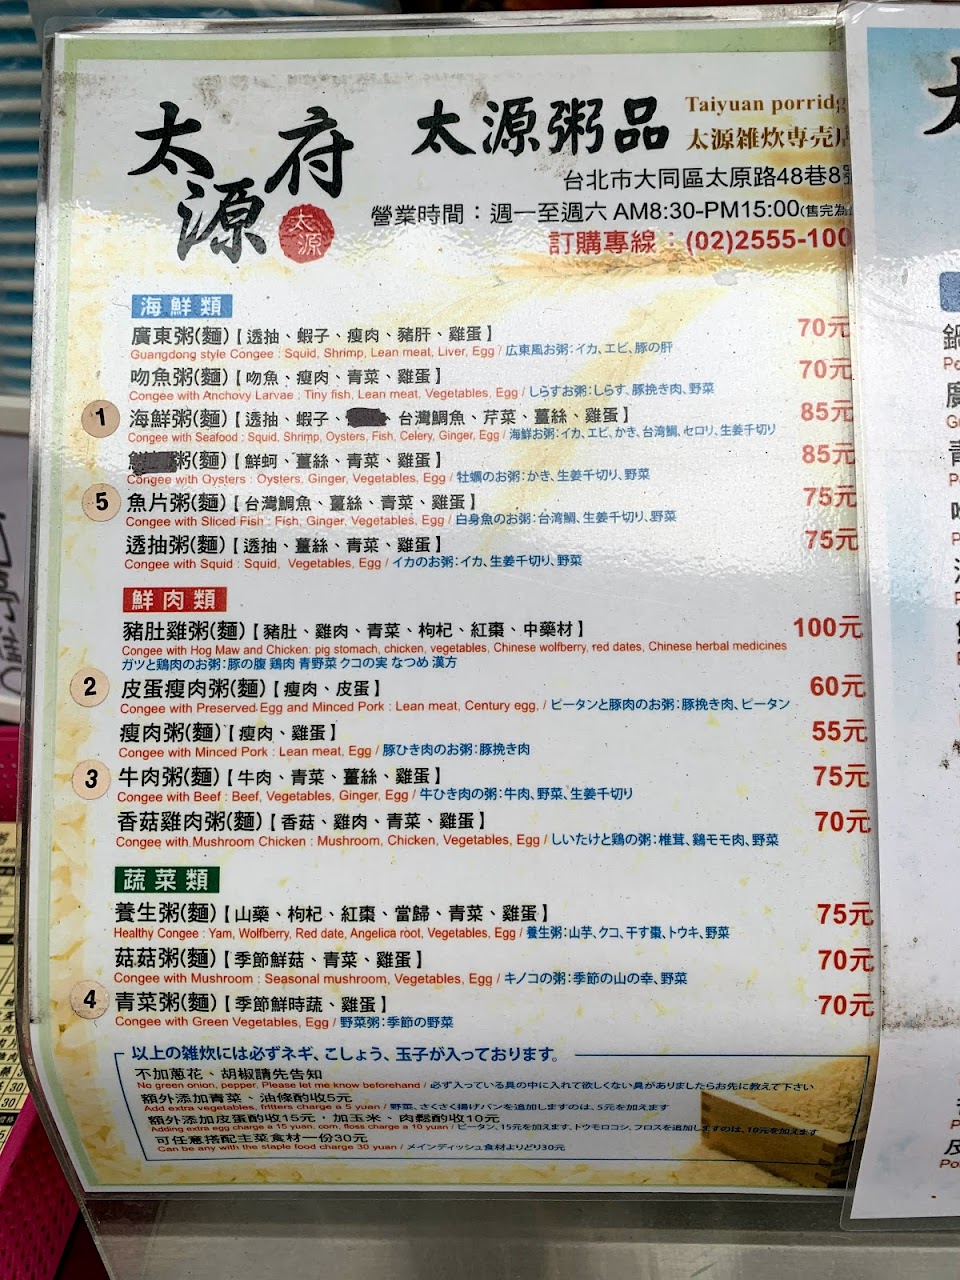 太源府
太源
太源粥品
Taiyuan porridg
太源雑炊専売
台北市大同區太原路48巷8
營業時間：週一至週六 AM8:30-PM15:00(售完為
訂購專線：(02)2555-100
海鮮類
廣東粥(麵)【透抽、蝦子、瘦肉、豬肝、雞蛋】 70元
Guangdong style Congee : Squid, Shrimp, Lean meat, Liver, Egg / 広東風お粥:イカ、エビ、豚の肝
吻魚粥(麵)【吻魚、瘦肉、青菜、雞蛋】 70元
Congee with Anchovy Larvae : Tiny fish, Lean meat, Vegetables, Egg / しらすお粥:しらす、豚挽き肉、野菜
1 海鮮粥(麵)【透抽、蝦子、 台灣鯛魚、芹菜、薑絲、雞蛋】 85元
Congee with Seafood : Squid, Shrimp, Oysters, Fish, Celery, Ginger, Egg / 海鮮お粥:イカ、エビ、かき、台湾鯛、セロリ、生姜千切り
粥(麵)【鮮蚵、薑絲、青菜、雞蛋】 85元
Congee with Oysters : Oysters, Ginger, Vegetables, Egg / 牡蠣のお粥:かき、生姜千切り、野菜
5 魚片粥(麵)【台灣鯛魚、薑絲、青菜、雞蛋】 75元
Congee with Sliced Fish : Fish, Ginger, Vegetables, Egg / 白身魚のお粥:台湾鯛、生姜千切り、野菜
透抽粥(麵)【透抽、薑絲、青菜、雞蛋】 75元
Congee with Squid : Squid, Vegetables, Egg / イカのお粥:イカ、生姜千切り、野菜
鮮肉類
豬肚雞粥(麵)【豬肚、雞肉、青菜、枸杞、紅棗、中藥材】 100元
Congee with Hog Maw and Chicken: pig stomach, chicken, vegetables, Chinese wolfberry, red dates, Chinese herbal medicines
ガツと鶏肉のお粥:豚の腹 鶏肉 青野菜 クコの実 なつめ 漢方
2 皮蛋瘦肉粥(麵)【瘦肉、皮蛋】 60元
Congee with Preserved Egg and Minced Pork : Lean meat, Century egg, / ピータンと豚肉のお粥:豚挽き肉、ピータン
瘦肉粥(麵)【瘦肉、雞蛋】 55元
Congee with Minced Pork : Lean meat, Egg / 豚ひき肉のお粥:豚挽き肉
3 牛肉粥(麵)【牛肉、青菜、薑絲、雞蛋】 75元
Congee with Beef : Beef, Vegetables, Ginger, Egg / 牛ひき肉の粥:牛肉、野菜、生姜千切り
香菇雞肉粥(麵)【香菇、雞肉、青菜、雞蛋】 70元
Congee with Mushroom Chicken : Mushroom, Chicken, Vegetables, Egg / しいたけと鶏の粥:椎茸、鶏モモ肉、野菜
蔬菜類
養生粥(麵)【山藥、枸杞、紅棗、當歸、青菜、雞蛋】 75元
Healthy Congee : Yam, Wolfberry, Red date, Angelica root, Vegetables, Egg / 養生粥:山芋、クコ、干す棗、トウキ、野菜
菇菇粥(麵)【季節鮮菇、青菜、雞蛋】 70元
Congee with Mushroom : Seasonal mushroom, Vegetables, Egg / キノコの粥:季節の山の幸、野菜
4 青菜粥(麵)【季節鮮時蔬、雞蛋】 70元
Congee with Green Vegetables, Egg / 野菜粥:季節の野菜
以上の雑炊には必ずネギ、こしょう、玉子が入っております。
不加蔥花、胡椒請先告知
No green onion, pepper, Please let me know beforehand / 必ず入っている具の中に入れて欲しくない具がありましたらお先に教えて下さい
額外添加青菜、油條酌收5元
Add extra vegetables, fritters charge a 5 yuan / 野菜、さくさく揚げパンを追加しますのは、5元を加えます
額外添加皮蛋酌收15元，加玉米、肉鬆酌收10元
Adding extra egg charge a 15 yuan, corn, floss charge a 10 yuan / ピータン、15元を加えます、トウモロコシ、フロスを追加しますのは、10元を加えます
可任意搭配主菜食材一份30元
Can be any with the staple food charge 30 yuan / メインディッシュ食材よりどり30元